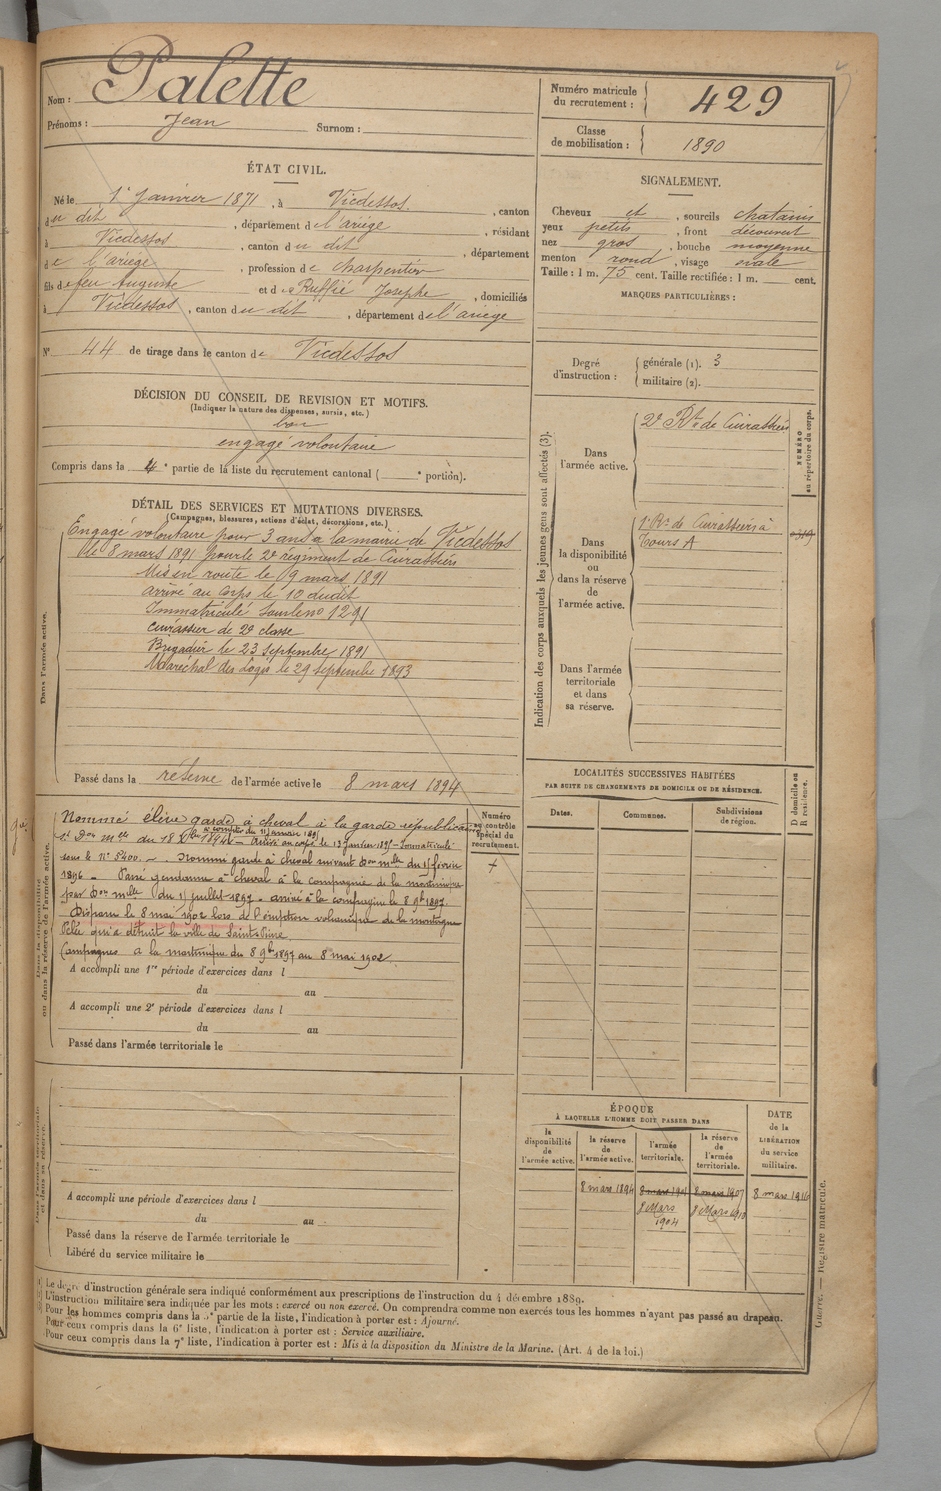 Nom : Palette
Prénoms : Jean Surnom :
Numéro matricule du recrutement : 429
Classe de mobilisation : 1890
ÉTAT CIVIL.
Né le 1er Janvier 1871, à Vicdessos, canton
du dit, département de l'ariège, résidant
à Vicdessos, canton du dit, département
de l'ariège, profession de charpentier
fils de feu Auguste et de Ruffié Josephe, domiciliés
à Vicdessos, canton du dit, département de l'ariège
N° 44 de tirage dans le canton de Vicdessos
SIGNALEMENT.
Cheveux et, sourcils chatains
yeux petits, front découvert
nez gros, bouche moyenne
menton rond, visage ovale
Taille : 1 m. 75 cent. Taille rectifiée : 1 m. cent.
MARQUES PARTICULIÈRES :
Degré d'instruction : générale (1). 3
militaire (2).
DÉCISION DU CONSEIL DE REVISION ET MOTIFS.
(Indiquer la nature des dispenses, sursis, etc.)
bon
engagé volontaire
Compris dans la 4e partie de la liste du recrutement cantonal ( e portion).
DÉTAIL DES SERVICES ET MUTATIONS DIVERSES.
(Campagnes, blessures, actions d'éclat, décorations, etc.)
Dans l'armée active.
Engagé volontaire pour 3 ans à la mairie de Vicdessos
le 8 mars 1891 pour le 2e régiment de Cuirassiers
Mis en route le 9 mars 1891
arrivé au Corps le 10 dudit
Immatriculé sous le no 1291
cuirassier de 2e classe
Brigadier le 23 septembre 1891
Maréchal des Logis le 29 septembre 1893
Passé dans la réserve de l'armée active le 8 mars 1894
Indication des corps auxquels les jeunes gens sont affectés (3).
NUMÉRO au répertoire du corps.
Dans l'armée active.
2e Rt de Cuirassiers
Dans la disponibilité ou dans la réserve de l'armée active.
1r Rt de Cuirassiers à
Tours A
Dans l'armée territoriale et dans sa réserve.
LOCALITÉS SUCCESSIVES HABITÉES
PAR SUITE DE CHANGEMENTS DE DOMICILE OU DE RÉSIDENCE.
D domicile ou R résidence.
Dates. Communes. Subdivisions de région.
Numéro au contrôle spécial du recrutement.
Dans la disponibilité ou dans la réserve de l'armée active.
Nommé élève garde à cheval à la garde républicaine
Arrivé au corps le 13 Janvier 1895 - Immatriculé
sous le N° 5400. - Nommé garde à cheval suivant Don mlle du 15 février
1896 - Passé gendarme à cheval à la compagnie de la martinique
par Don mlle du 15 juillet 1897 - arrivé à la compagnie le 8 9bre 1897.
Disparu le 8 mai 1902 lors de l'éruption volcanique de la montagne
Pelée qui a détruit la ville de Saint-Pierre
Campagnes a la martinique du 8 9bre 1897 au 8 mai 1902
A accompli une 1re période d'exercices dans l
du au
A accompli une 2e période d'exercices dans l
du au
Passé dans l'armée territoriale le
Dans l'armée territoriale et dans sa réserve.
A accompli une période d'exercices dans l
du au
Passé dans la réserve de l'armée territoriale le
Libéré du service militaire le
ÉPOQUE
À LAQUELLE L'HOMME DOIT PASSER DANS
la disponibilité de l'armée active.
la réserve de l'armée active.
l'armée territoriale.
la réserve de l'armée territoriale.
DATE de la LIBÉRATION du service militaire.
8 mars 1894 8 mars 1901 8 mars 1907 8 mars 1916
8 Mars 1904 8 Mars 1910
(1) Le degré d'instruction générale sera indiqué conformément aux prescriptions de l'instruction du 4 décembre 1889.
(2) L'instruction militaire sera indiquée par les mots : exercé ou non exercé. On comprendra comme non exercés tous les hommes n'ayant pas passé au drapeau.
(3) Pour les hommes compris dans la 5e partie de la liste, l'indication à porter est : Ajourné.
Pour ceux compris dans la 6e liste, l'indication à porter est : Service auxiliaire.
Pour ceux compris dans la 7e liste, l'indication à porter est : Mis à la disposition du Ministre de la Marine. (Art. 4 de la loi.)
Guerre. — Registre matricule.